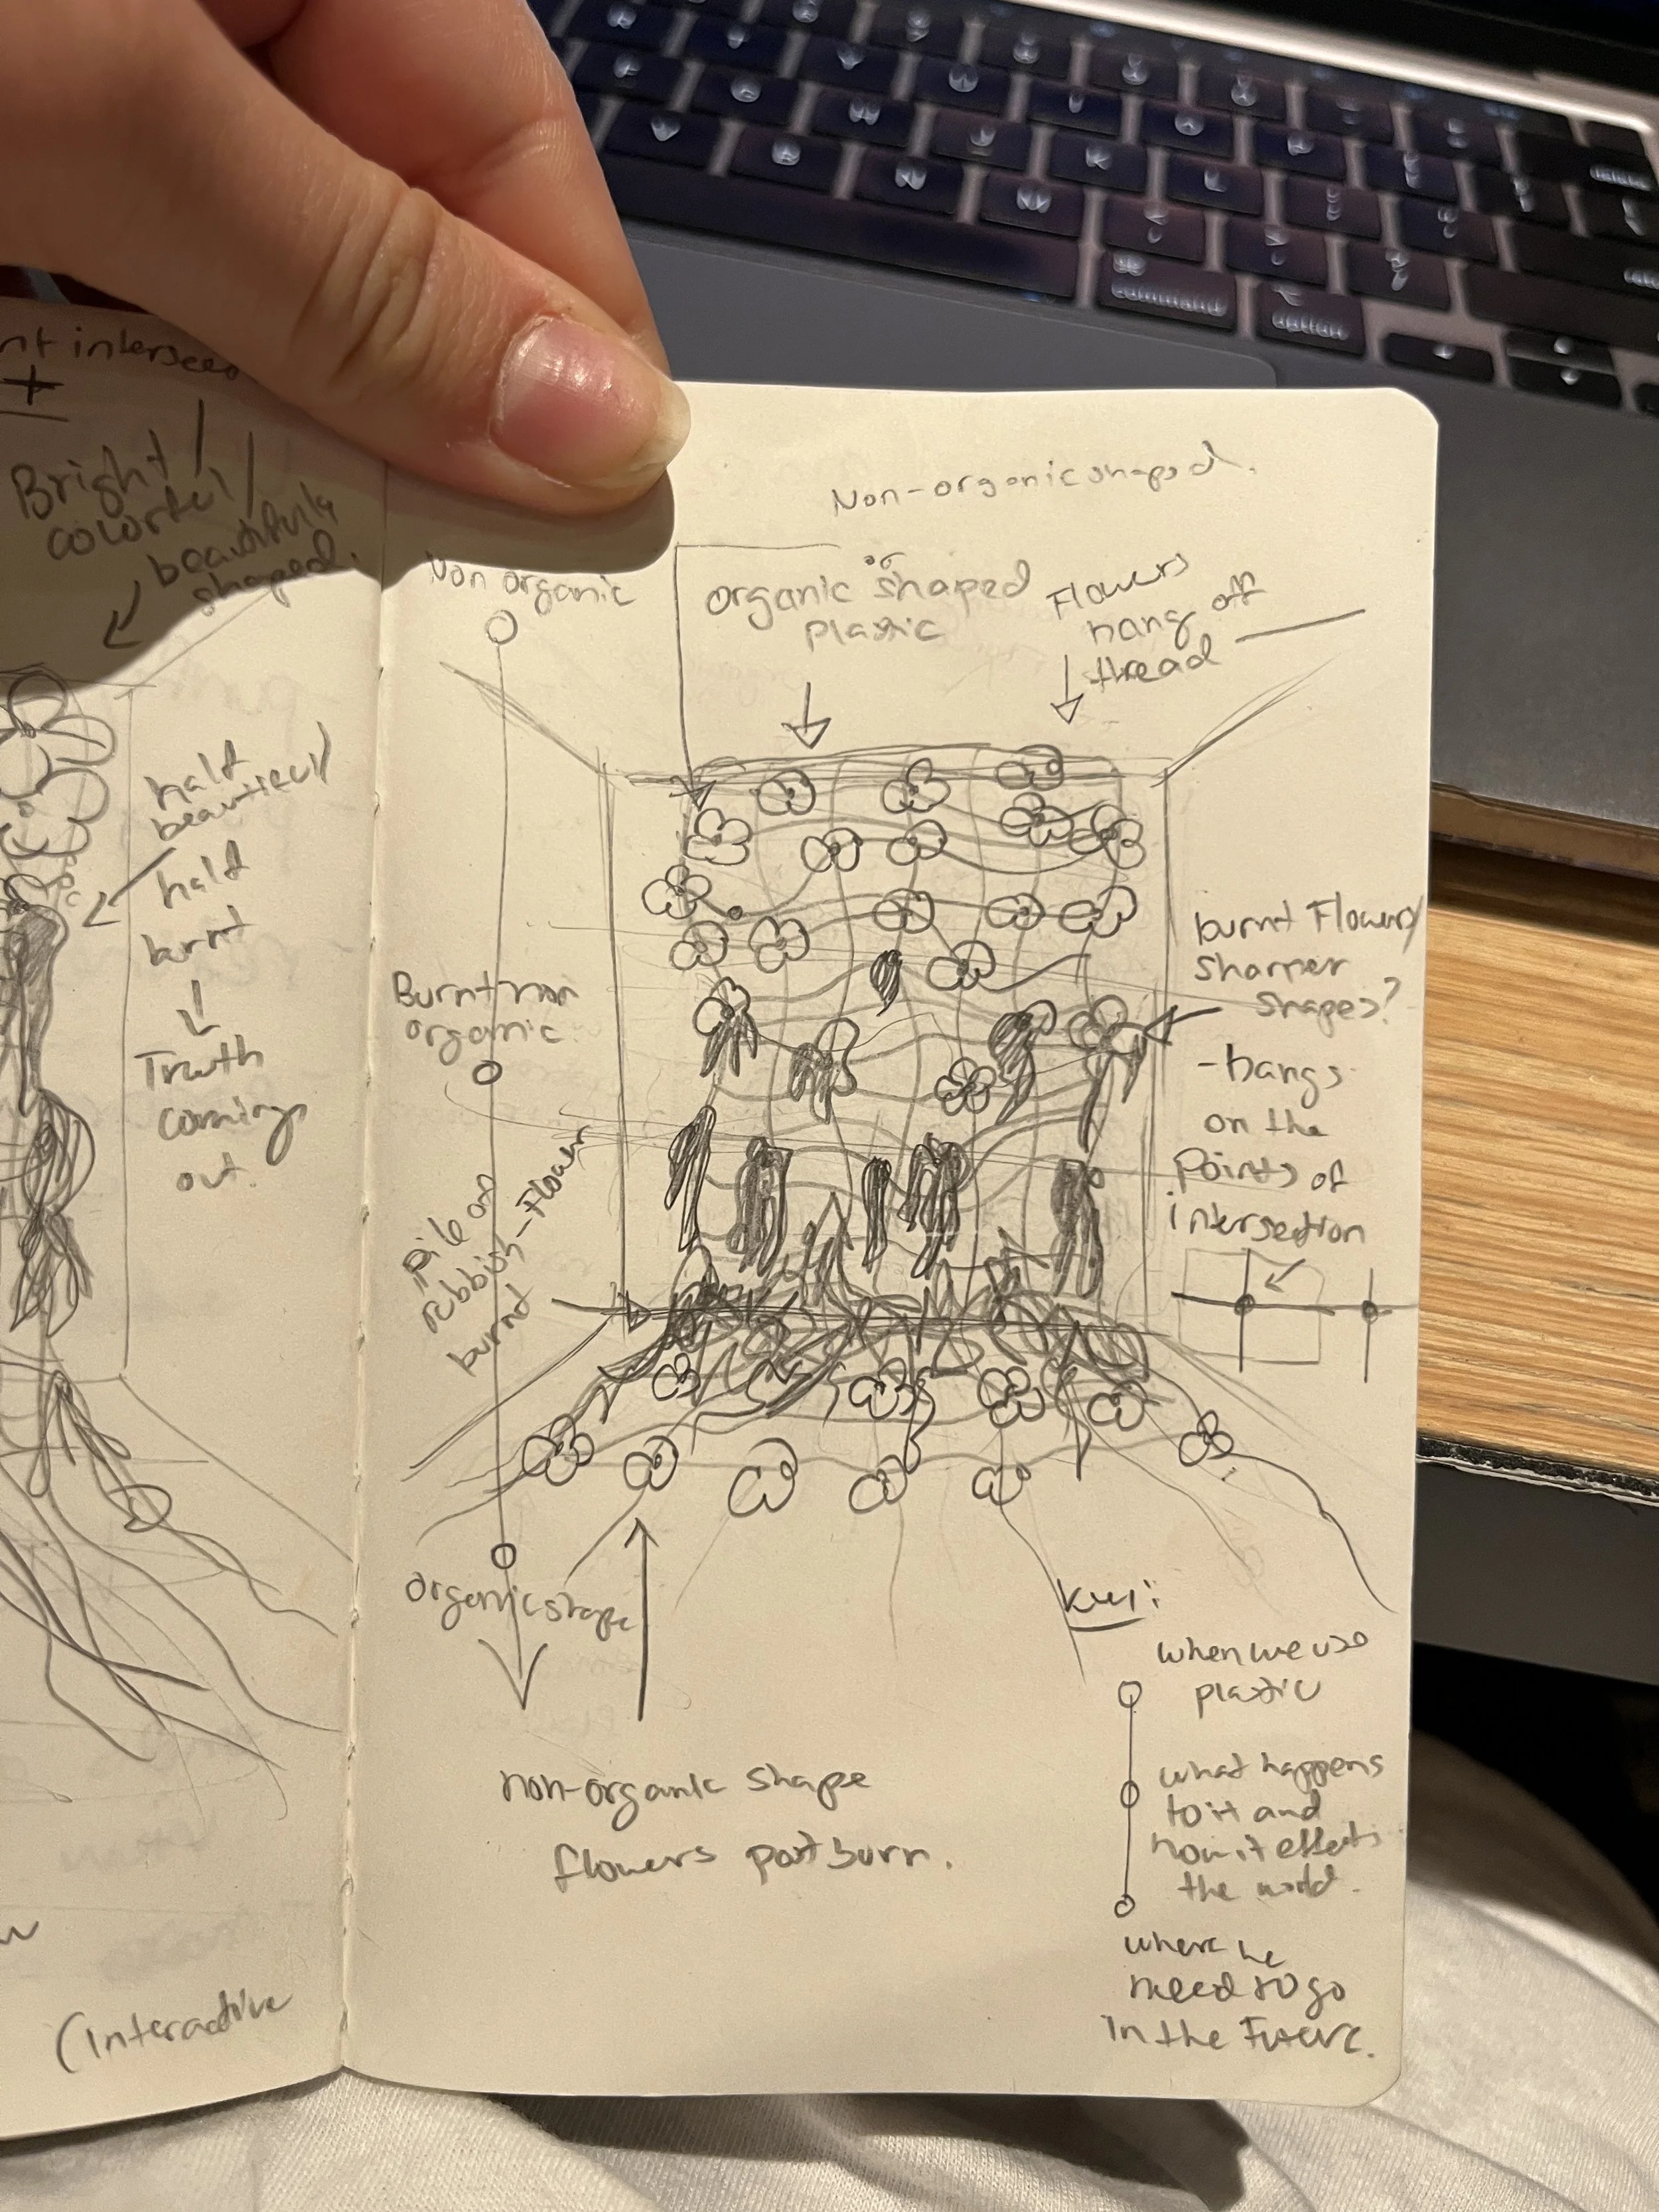 Bright /
colorful /
beautifully
shaped.
half
beautiful /
half
burnt
Truth
coming
out.
(Interactive
Non-organic shaped.
or
Non organic
organic shaped
plastic
Flowers
hang off
thread
Burnt non
organic.
burnt Flowers /
sharper
shapes?
- hangs
on the
Points of
intersection
Pile of
rubbish - Flower
burnt
organic shape
non-organic shape
flowers post burn.
Key:
when we use
plastic
what happens
to it and
how it effects
the world.
where we
need to go
in the Future.
command
option
delete